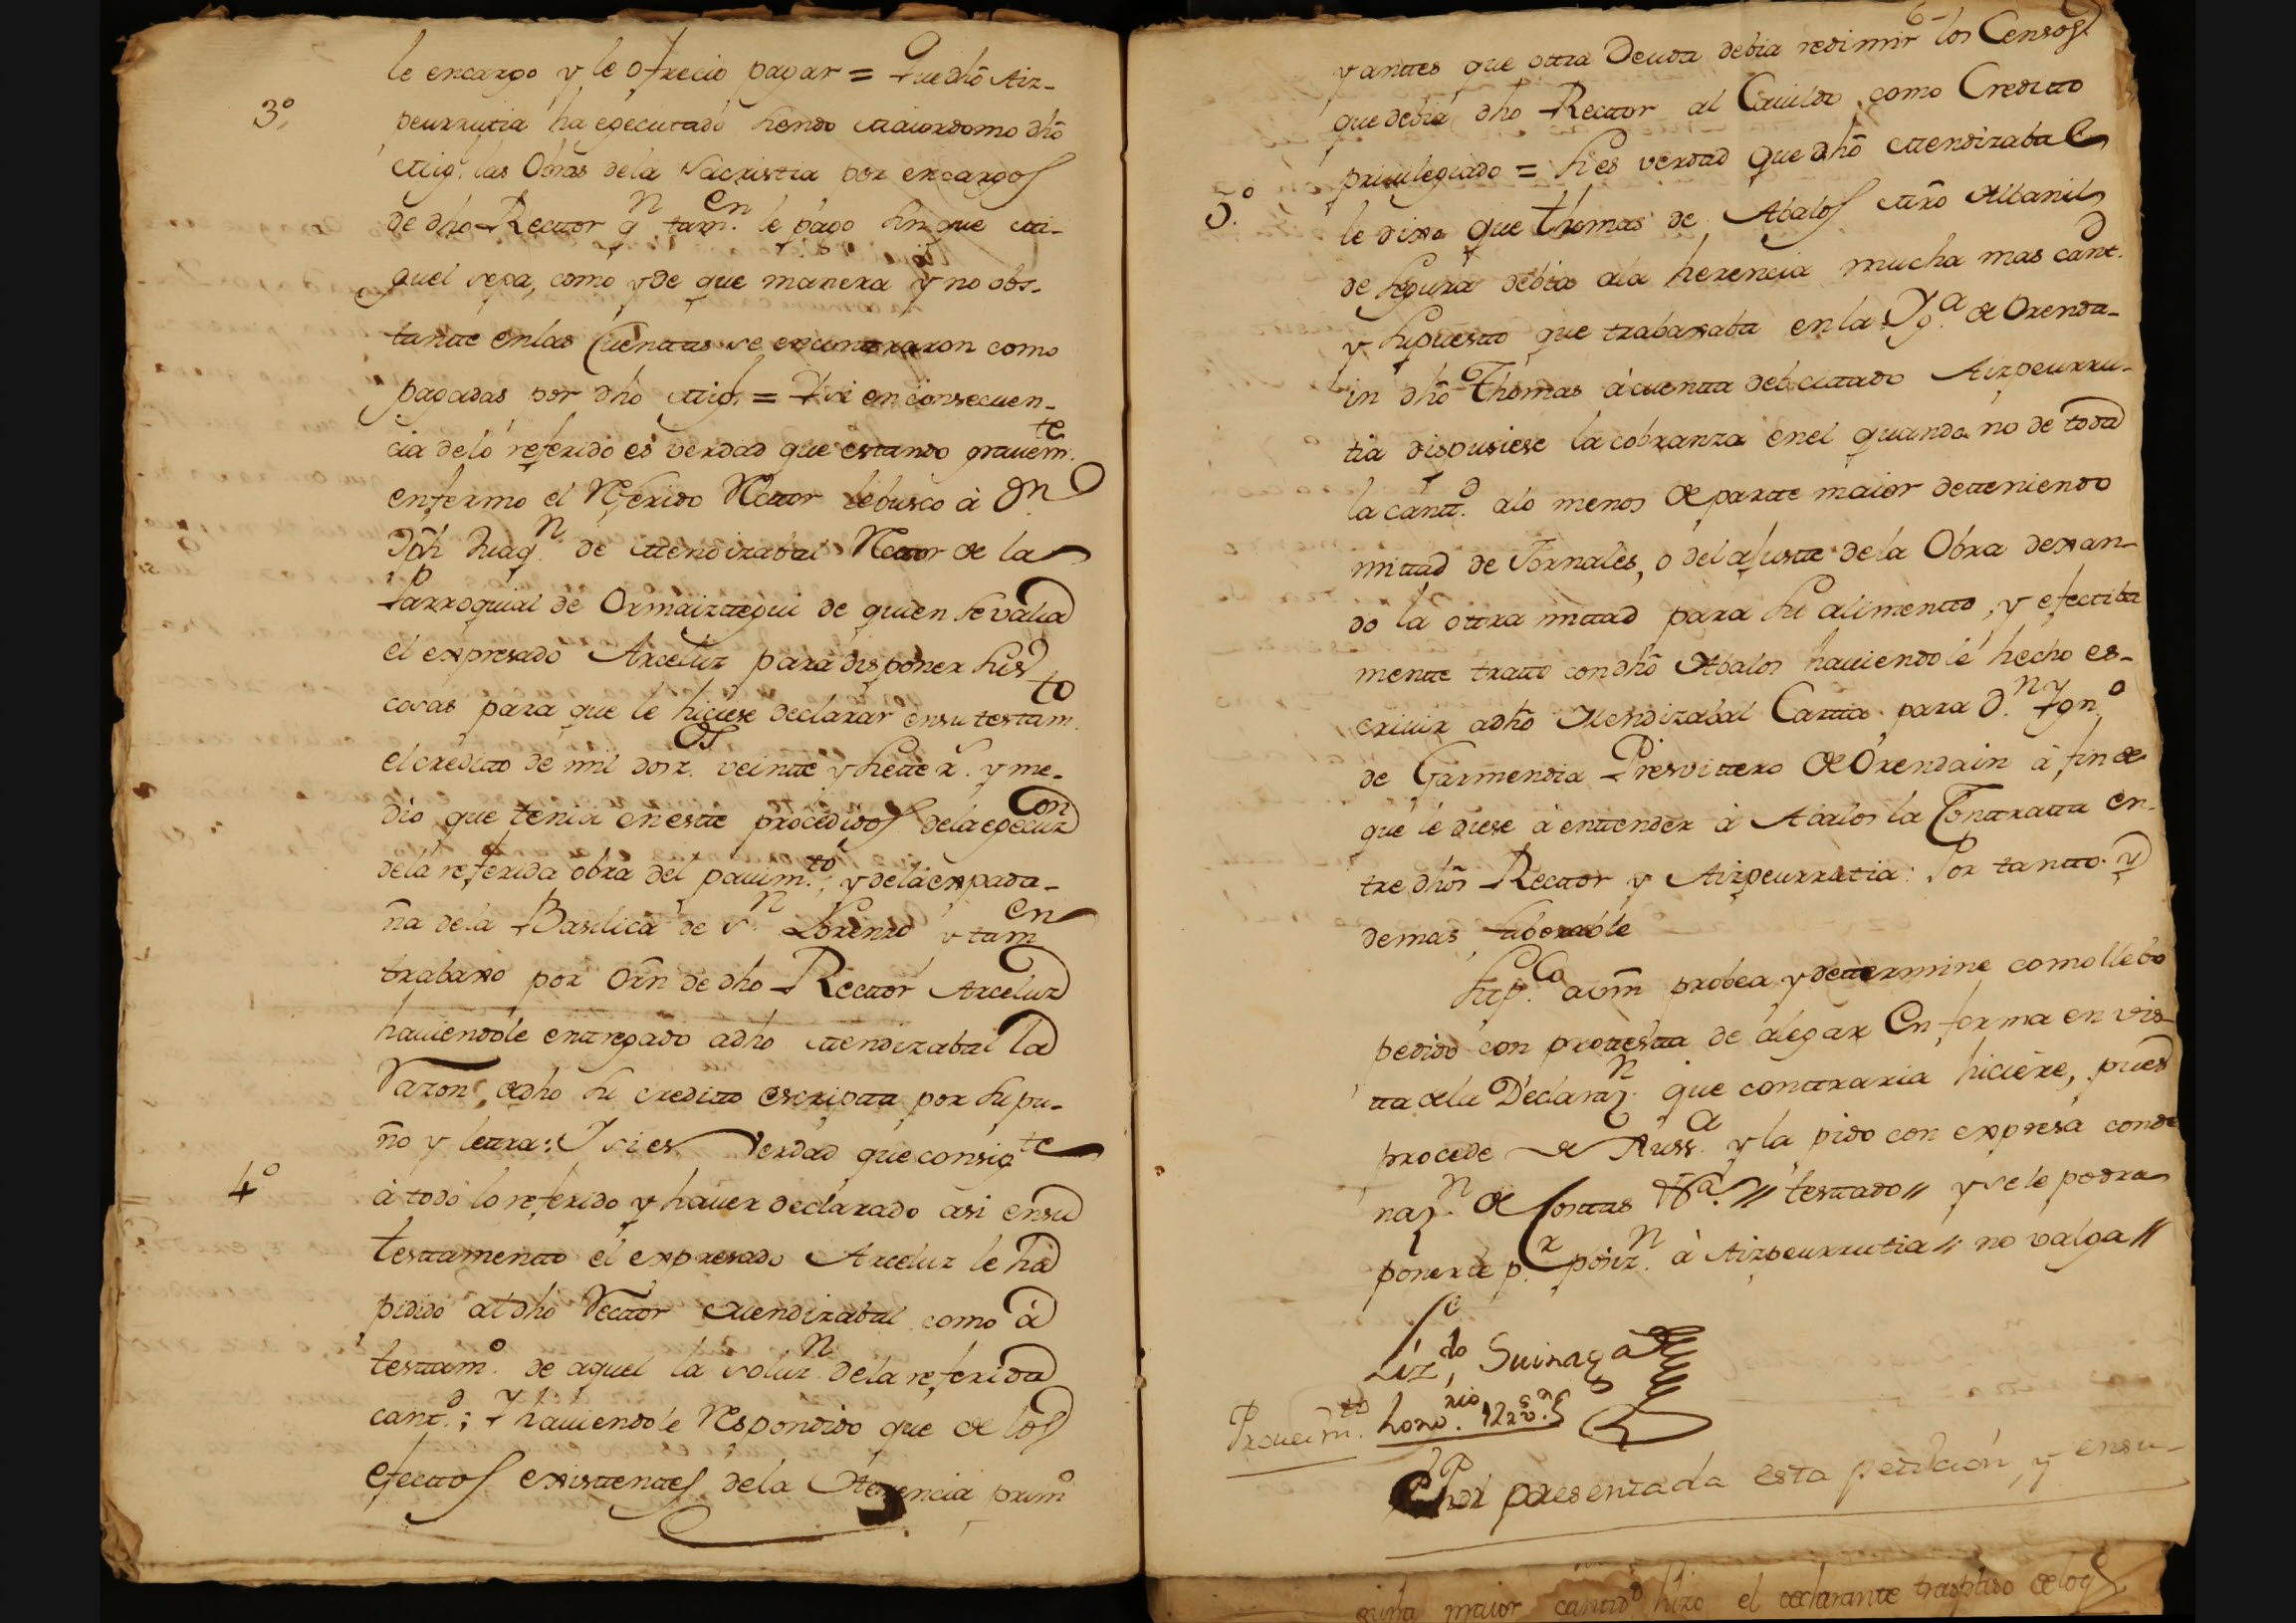 le encargo y le ofrecio pagar = Que dhô Aiz-
3º
peurrutia ha egecutado siendo Maiordomo dhô
Mig.l las Obras dela Sacristia por encargos
de dho Rector q.n tam.en le pago sin que Mi-
guel sepa, como y de que manera y no obs-
tante en las Cuenttas se encontraron como
pagadas por dho Mig.l = Y si en consecuen-
cia delo referido es verdad que estando gravem.te
enfermo el Referido Rector le busco à Dn.
Jph Juaq.n de Mendizabal Rector de la
Parroquial de Ormaizttegui de quien se valia
el expresado Arceluz para disponer sus
cosas para que le hiciese declarar en su testam.to
el creditto de mil dos z.os veinte y siette r.s y me-
dio que tenia en estte procedidos dela egecuz.on
dela referida obra del pavim.to, y dela expada-
ña dela Basilica de S.n Lorenzo y tam.en
trabaxo por Orn de dho Rector Arceluz
haviendole entregado adho Mendizabal la
Razon, de dho su creditto escriptta por su pu-
ño y lettra: Y si es Verdad que consig.te
4º
à todo lo referido y haver declarado asi en su
Testtamentto el expresado Arceluz le ha
pidido al dho Rector Mendizabal como à
testtam.o de aquel la soluz.n dela referida
cant.d; Y haviendole Respondido que de los
efecttos existtenttes dela Herencia primº
6
y anttes que ottra Deuda debia redimir los Censos
que debia dho Rector al Cavildo, como Creditto
privilegiado = Si es verdad que dhô Mendizabal
5.º
le dixo que Thomas de Abalos Mrô Albanil
de Segura debia ala herencia mucha mas cant.d
y supuestto que trabaxaba en la Yg.a de Orenda-
in dhô Thomas à cuentta del cittado Aizpeurru-
tia dispusiese la cobranza en el quando no de toda
la cantt.d alo menos de partte maior detteniendo
mittad de Jornales, o del ajustte dela Obra dexan-
do la ottra mittad para su alimentto, y efectiba
mentte tratto con dhô Abalos haviendole hecho es-
crivir adhô Mendizabal Cartta para D.n Ygn.o
de Garmendia Presvittero de Orendain à fin de
que le diese à enttender à Abalos la Conttratta en-
tre dhôs Rector y Aizpeurrutia: Por tantto y
demas faborable
Sup.co a Vm̃ probea y dettermine como llebo
pedido con prottestta de alegar En forma en vis-
tta dela Declaraz.n que conttraria hiciere, pues
procede de Juss.a y la pido con expresa conde
naz.n de Costtas &.a // testtado // y se le podra
ponerle p.r porz.n à Aizpeurrutia // no valga //
Liz.do Suinaga
hono.rio 12 rs. v.n
Proveim.to
Por presentada esta peticion, y en su-
guna maior cantid.d hizo el declarante traspaso delos